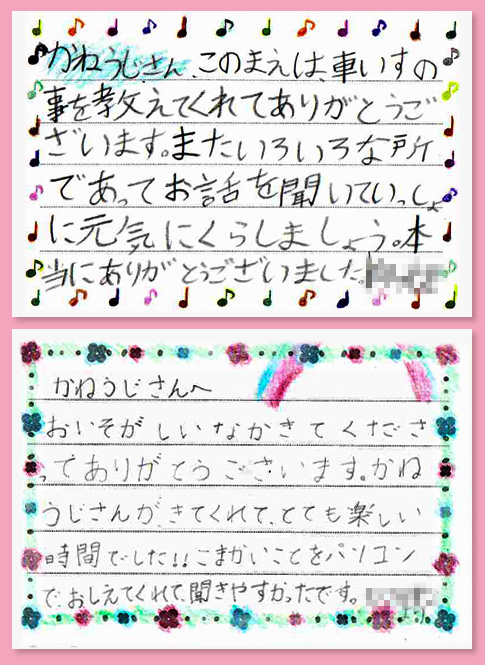 かねうじさん、このまえは、車いすの
事を教えてくれてありがとうご
ざいます。またいろいろな所
であってお話を聞いていっしょ
に元気にくらしましょう。本
当にありがとうございました。
かねうじさんへ
おいそがしいなかきてくださ
ってありがとうございます。かね
うじさんが、きてくれて、とても楽しい
時間でした!!こまかいことをパソコン
でおしえてくれて、聞きやすかったです。